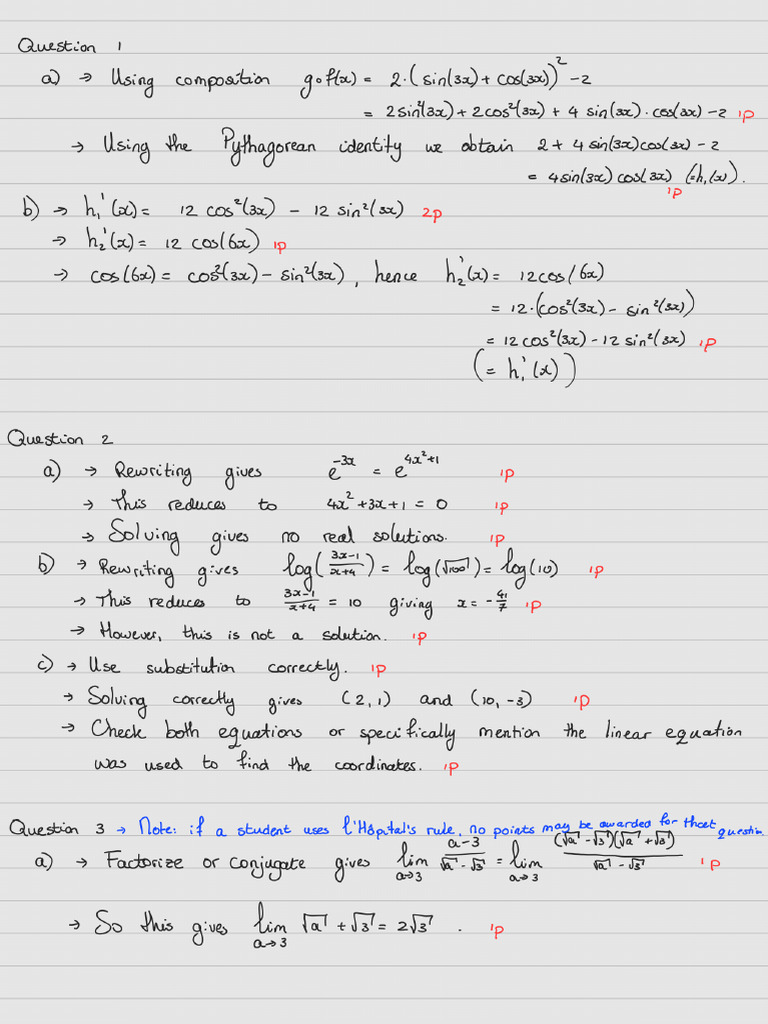 Question 1
a) → Using composition g∘f(x) = 2·(sin(3x) + cos(3x))² - 2
= 2sin²(3x) + 2cos²(3x) + 4 sin(3x)·cos(3x) - 2 1p
→ Using the Pythagorean identity we obtain 2 + 4 sin(3x)cos(3x) - 2
= 4sin(3x) cos(3x) (=h₁(x)). 1p
b) → h₁'(x) = 12 cos²(3x) - 12 sin²(3x) 2p
→ h₂'(x) = 12 cos(6x) 1p
→ cos(6x) = cos²(3x) - sin²(3x), hence h₂'(x) = 12cos(6x)
= 12·(cos²(3x) - sin²(3x))
= 12cos²(3x) - 12 sin²(3x) 1p
(= h₁'(x))
Question 2
a) → Rewriting gives e^(-3x) = e^(4x²+1) 1p
→ This reduces to 4x² + 3x + 1 = 0 1p
→ Solving gives no real solutions. 1p
b) → Rewriting gives log((3x-1)/(x+4)) = log(√100) = log(10) 1p
→ This reduces to (3x-1)/(x+4) = 10 giving x = -41/7 1p
→ However, this is not a solution. 1p
c) → Use substitution correctly. 1p
→ Solving correctly gives (2,1) and (10,-3) 1p
→ Check both equations or specifically mention the linear equation
was used to find the coordinates. 1p
Question 3 → Note: if a student uses l'Hôpital's rule, no points may be awarded for that question.
a) → Factorize or conjugate gives lim a→3 (a-3)/(√a - √3) = lim a→3 ((√a - √3)(√a + √3))/(√a - √3) 1p
→ So this gives lim a→3 √a + √3 = 2√3. 1p